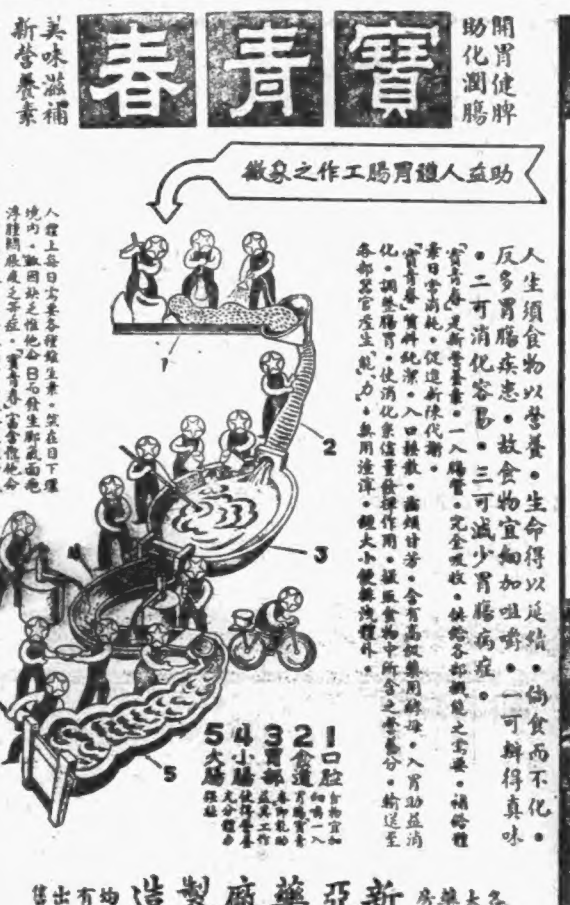 開胃健脾
助化潤腸
寶青春
美味滋補
新營養素
助益人體胃腸工作之象徵
人生須食物以營養。生命得以延續。倘食而不化。
反多胃腸疾患。故食物宜細加咀嚼。一可辨得真味
。二可消化容易。三可減少胃腸病症。
「寶青春」是新營養素。一入腸胃。完全吸收。供給各部機能之需要。補給體
素日常消耗。促進新陳代謝。
「寶青春」質料純潔。入口鬆散。齒頰甘芳。含有高級藥用酵母。入胃助益消
化。調整腸胃。使消化素儘量發揮作用。攝取食物中所含之營養份。輸送至
各部器官產生「能」「力」。無用渣滓。隨大小便排洩體外。
人體上每日需要各種維生素。笶在目下環
境內。
1
2
3
4
5
1口腔 食物宜加細嚼
2食道
3胃部
4小腸
5大腸
各大藥房均有出售
新亞藥廠製造